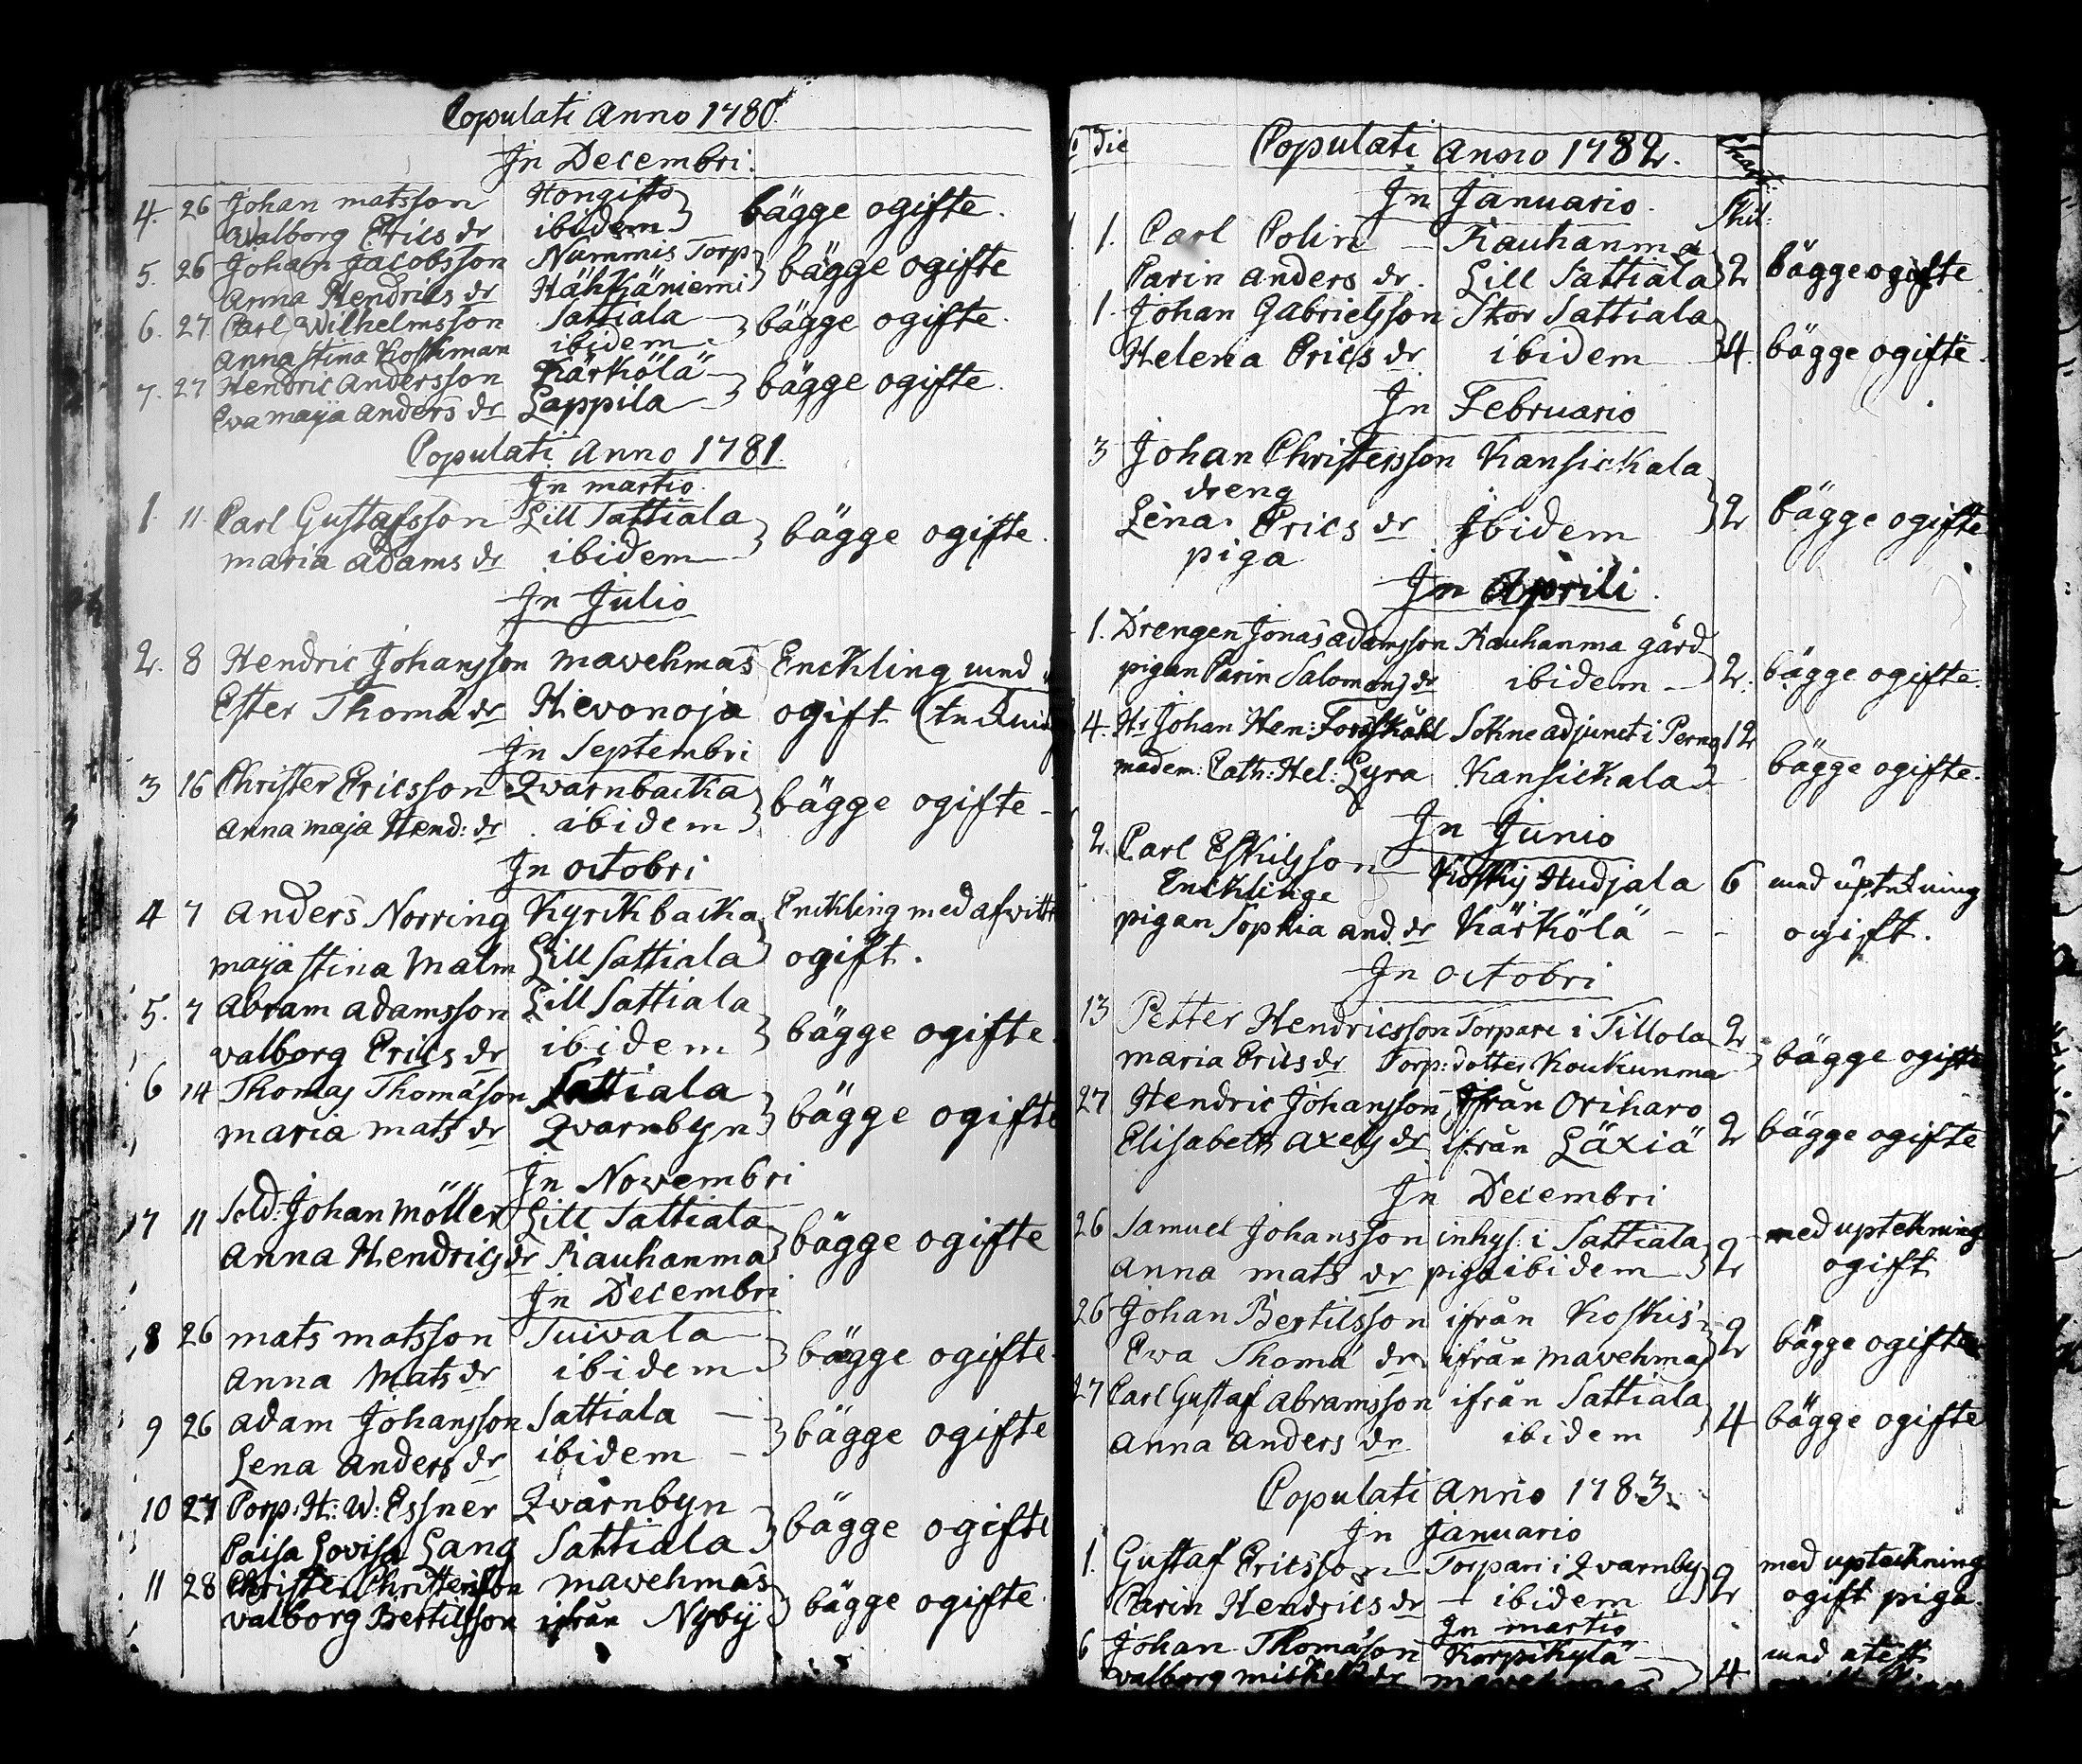 Copulati Anno 1780.
In Decembri.
4. 26 Johan matsson Hongisto
Walborg Erics dr ibidem } bägge ogifte.
5. 26 Johan Jacobsson Nummis Torp
Anna Hendrics dr Hähkäniemi } bägge ogifte
6. 27 Carl Wilhelmsson Sattiala
Anna Stina Koskman ibidem } bägge ogifte.
7. 27 Hendric Andersson Kärkölä
Eva maja Anders dr Lappila } bägge ogifte.
Copulati Anno 1781.
In martio.
1. 11. Carl Gustafsson Lill Sattiala
maria Adams dr ibidem } bägge ogifte.
In Julio
2. 8 Hendric Johansson mavehmas Enckling
Ester Thoma dr Hevonoja ogift
In Septembri
3 16 Christer Ericsson Qvarnbacka
Anna maja Hend: dr ibidem } bägge ogifte
In octobri
4 7 Anders Norring Kyrckbacka Enckling med afvitt
maja stina Malm Lill Sattiala ogift.
5. 7 Abram Adamsson Lill Sattiala
valborg Erics dr ibidem } bägge ogifte.
6 14 Thomas Thomasson Sattiala
maria mats dr Qvarnbyn } bägge ogifte
In Novembri
7 11 Sold: Johan Möller Lill Sattiala
Anna Hendrics dr Kauhanma } bägge ogifte
In Decembri
8 26 mats matsson Tuivala
Anna Mats dr ibidem } bägge ogifte.
9 26 Adam Johansson Sattiala
Lena Anders dr ibidem } bägge ogifte
10 27 Corp: H: W: Essner Qvarnbyn
Caisa Lovisa Lang Sattiala } bägge ogifte
11 28 Christer Christersson mavehmas
valborg Bertilsson ifrån Nyby } bägge ogifte.
die Copulati Anno 1782.
In Januario. Skil:
1. Carl Colin Kauhanma
Carin Anders dr. Lill Sattiala } 2 bägge ogifte
1. Johan Gabrielsson Stor Sattiala
Helena Erics dr ibidem } 4. bägge ogifte.
In Februario
3 Johan Christersson Kansickala
dreng
Lena Erics dr Ibidem } 2 bägge ogifte
piga
In Aprili.
1. Drengen Jonas Adamsson Kauhanma gård
pigan Carin Salomons dr ibidem } 2. bägge ogifte.
4. Hr Johan Hen: Forsskåhl Sokne adjunct i Perno 12
madem: Cath: Hel: Lyra Kansickala bägge ogifte.
In Junio
2. Carl Eskilsson Koskis Hudjala 6 med uptekning
Encklinge
pigan Sophia And dr Kärkölä - - ogift.
In octobri
13 Petter Hendricsson Torpare i Tillola 2
maria Erics dr Torp: dotter Koukunma } bägge ogifte
27 Hendric Johansson ifrån Oriharo
Elisabeth Axels dr ifrån Läxiä 2 bägge ogifte
In Decembri
26 Samuel Johansson inhys: i Sattiala med uptekning
Anna mats dr piga ibidem } 2 ogift
26 Johan Bertilsson ifrån Koskis
Ewa Thoma dr ifrån mavehmas } 2 bägge ogifte
27 Carl Gustaf Abramsson ifrån Sattiala
Anna Anders dr ibidem } 4 bägge ogifte
Copulati Anno 1783.
In Januario
1. Gustaf Ericsson Torpare i Qvarnby med upteckning
Carin Hendrics dr ibidem } 2 ogift piga
In martio
6 Johan Thomasson Korpikylä med atest
valborg } 4